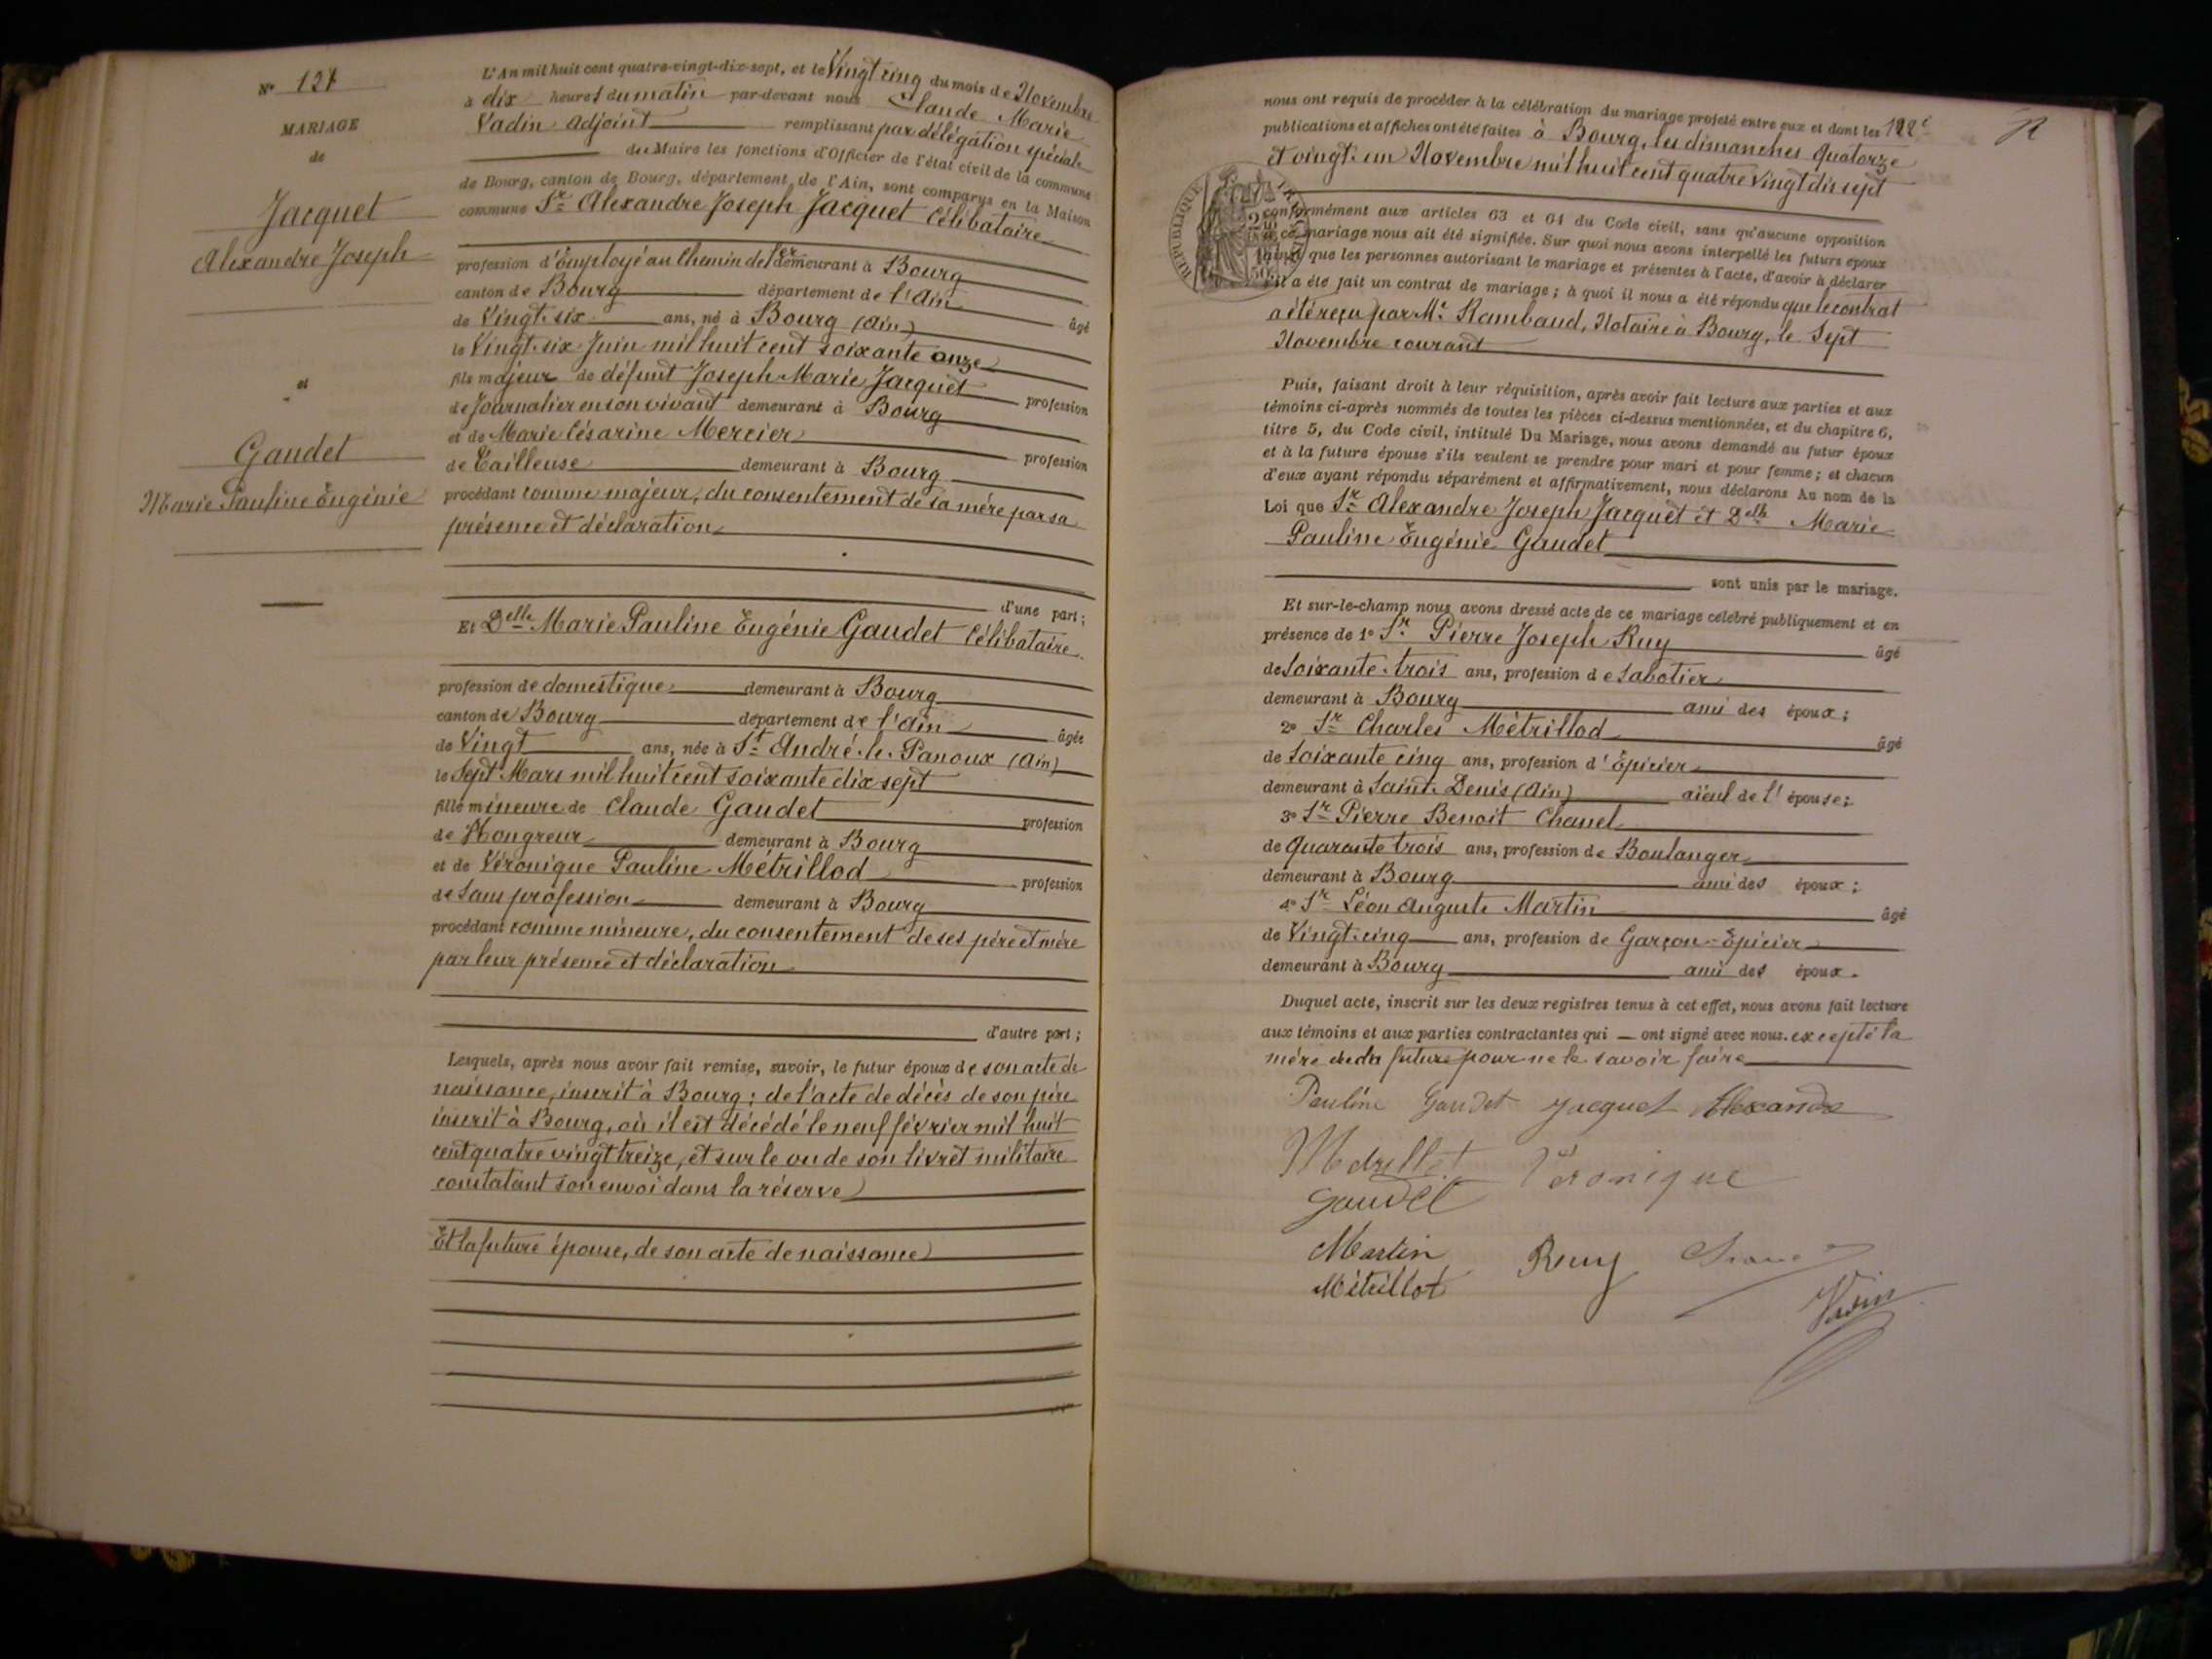 Nº 127
MARIAGE
de
Jacquet
Alexandre Joseph
et
Gaudet
Marie Pauline Eugénie
L'An mil huit cent quatre-vingt-dix-sept, et le Vingt cinq du mois de Novembre
à dix heures du matin par-devant nous Claude Marie
Vadin Adjoint remplissant par délégation spéciale
du Maire les fonctions d'Officier de l'état civil de la commune
de Bourg, canton de Bourg, département de l'Ain, sont comparus en la Maison
commune Sr Alexandre Joseph Jacquet Célibataire
profession d'Employé au Chemin de fer demeurant à Bourg
canton de Bourg département de l'Ain âgé
de Vingt-six ans, né à Bourg (Ain)
le Vingt-six Juin mil huit cent soixante onze
fils majeur de défunt Joseph Marie Jacquet profession
de Journalier en son vivant demeurant à Bourg
et de Marie Césarine Mercier profession
de Tailleuse demeurant à Bourg
procédant comme majeur, du consentement de sa mère par sa
présence et déclaration
d'une part;
Et Delle Marie Pauline Eugénie Gaudet Célibataire
profession de domestique demeurant à Bourg
canton de Bourg département de l'Ain âgée
de Vingt ans, née à St André-le-Panoux (Ain)
le Sept Mars mil huit cent soixante dix sept
fille mineure de Claude Gaudet profession
de Hongreur demeurant à Bourg
et de Véronique Pauline Métrillod profession
de Sans profession demeurant à Bourg
procédant comme mineure, du consentement de ses père et mère
par leur présence et déclaration
d'autre part;
Lesquels, après nous avoir fait remise, savoir, le futur époux de son acte de
naissance, inscrit à Bourg; de l'acte de décès de son père
inscrit à Bourg, où il est décédé le neuf février mil huit
cent quatre vingt treize, et sur le vu de son livret militaire
constatant son envoi dans la réserve
Et la future épouse, de son acte de naissance
nous ont requis de procéder à la célébration du mariage projeté entre eux et dont les 122e
publications et affiches ont été faites à Bourg, les dimanches Quatorze
et vingt-un Novembre mil huit cent quatre vingt dix sept
RÉPUBLIQUE
conformément aux articles 63 et 64 du Code civil, sans qu'aucune opposition
à ce mariage nous ait été signifiée. Sur quoi nous avons interpellé les futurs époux
ainsi que les personnes autorisant le mariage et présentes à l'acte, d'avoir à déclarer
s'il a été fait un contrat de mariage; à quoi il nous a été répondu que le contrat
a été reçu par Me Rambaud, Notaire à Bourg, le Sept
Novembre courant
Puis, faisant droit à leur réquisition, après avoir fait lecture aux parties et aux
témoins ci-après nommés de toutes les pièces ci-dessus mentionnées, et du chapitre 6,
titre 5, du Code civil, intitulé Du Mariage, nous avons demandé au futur époux
et à la future épouse s'ils veulent se prendre pour mari et pour femme; et chacun
d'eux ayant répondu séparément et affirmativement, nous déclarons Au nom de la
Loi que Sr Alexandre Joseph Jacquet et Delle Marie
Pauline Eugénie Gaudet
sont unis par le mariage.
Et sur-le-champ nous avons dressé acte de ce mariage célébré publiquement et en
présence de 1º Sr Pierre Joseph Ruy âgé
de Soixante-trois ans, profession de Sabotier
demeurant à Bourg ami des époux;
2º Sr Charles Métrillod âgé
de Soixante cinq ans, profession d'Epicier
demeurant à Saint-Denis (Ain) aïeul de l'épouse;
3º Sr Pierre Benoit Chanel
de Quarante trois ans, profession de Boulanger
demeurant à Bourg ami des époux;
4º Sr Léon Auguste Martin âgé
de Vingt-cinq ans, profession de Garçon-Epicier
demeurant à Bourg ami des époux.
Duquel acte, inscrit sur les deux registres tenus à cet effet, nous avons fait lecture
aux témoins et aux parties contractantes qui — ont signé avec nous. excepté la
mère du futur pour ne le savoir faire
Pauline Gaudet Jacquet Alexandre
Metrillot Véronique
Gaudet
Martin Ruy
Métrillot Vadin